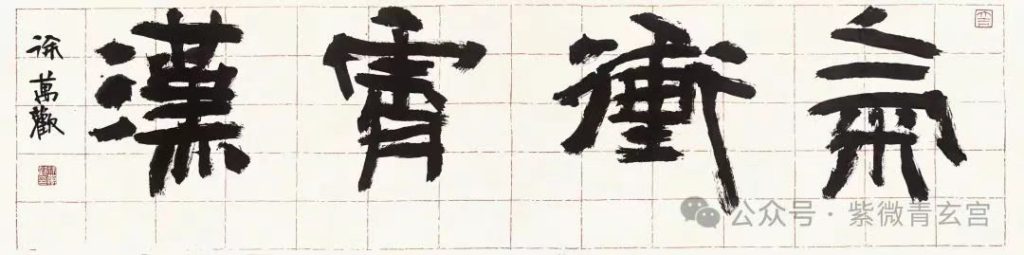 氣衝霄漢
徐萬歡
公众号·紫微青玄宫